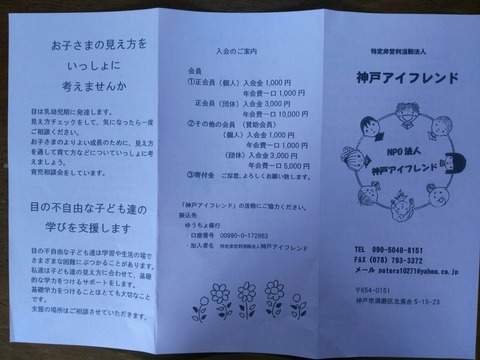 お子さまの見え方を
いっしょに
考えませんか
目は乳幼児期に発達します。
見え方チェックをして、気になったら一度
ご相談ください。
お子さまのよりよい成長のために、見え方
を通して育て方などについていっしょに考
えましょう。
育児相談会をしています。
目の不自由な子ども達の
学びを支援します
目の不自由な子ども達は学習や生活の場で
さまざまな困難にぶつかることがあります。
私達は子ども達の見え方に合わせて、基礎
的な学力をつけるサポートをします。
基礎学力をつけることはとても大切なこと
です。
支援の場所はご相談させていただきます。
入会のご案内
会員
①正会員（個人）入会金 1,000円
年会費一口 1,000円
正会員（団体）入会金 3,000円
年会費一口 10,000円
②その他の会員（賛助会員）
（個人）入会金 1,000円
年会費一口 1,000円
（団体）入会金 3,000円
年会費一口 5,000円
③寄付金 ご厚意、よろしくお願い致します。
「神戸アイフレンド」の活動にご協力ください。
振込先
ゆうちょ銀行
・口座番号 00990-0-172863
・加入者名 特定非営利活動法人神戸アイフレンド
特定非営利活動法人
神戸アイフレンド
NPO法人
神戸アイフレンド
TEL 090-5046-8151
FAX (078) 793-3372
メール patora10271@yahoo.co.jp
〒654-0151
神戸市須磨区北落合 5-15-23